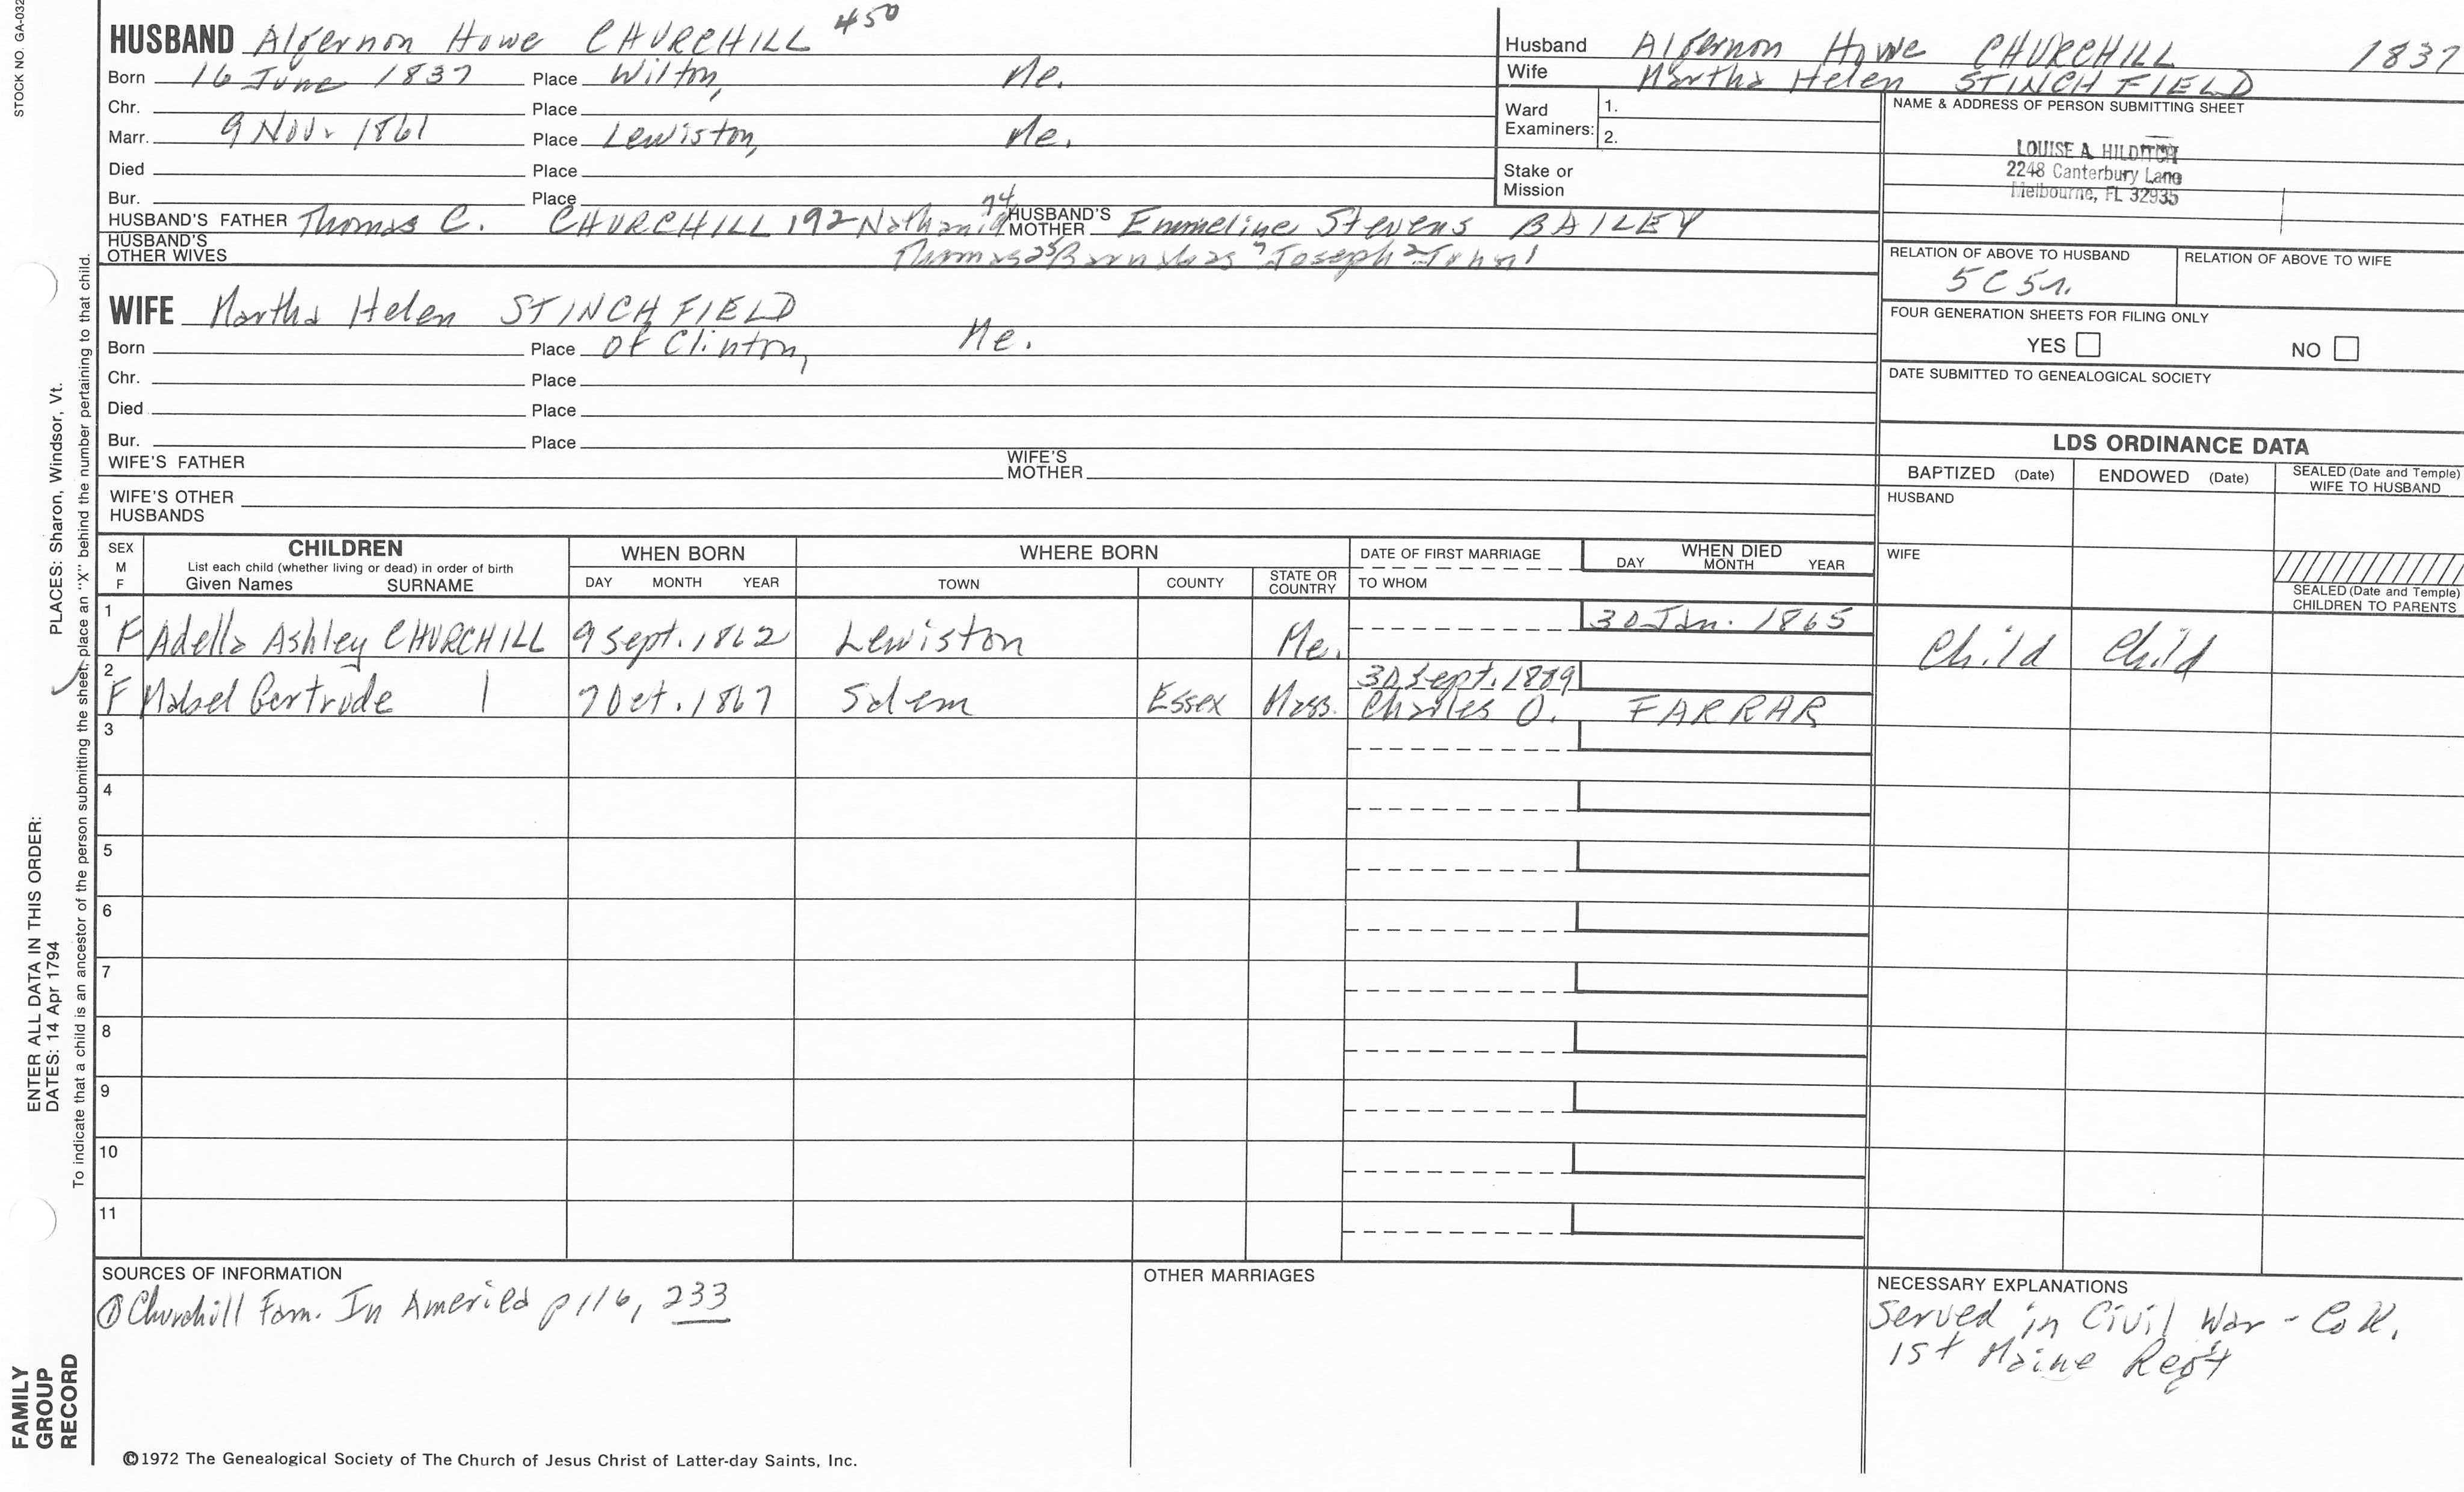 STOCK NO. GA-032
HUSBAND Algernon Howe CHURCHILL 450
Born 16 June 1837 Place Wilton, Me.
Chr. Place
Marr. 9 Nov. 1861 Place Lewiston, Me.
Died Place
Bur. Place
HUSBAND'S FATHER Thomas C. CHURCHILL 192 Nathaniel 74 HUSBAND'S MOTHER Emmeline Stevens BAILEY
HUSBAND'S OTHER WIVES Thomas 25 Barnabas 7 Joseph 2 John 1
Husband Algernon Howe CHURCHILL 1837
Wife Martha Helen STINCHFIELD
Ward Examiners: 1.
2.
Stake or Mission
NAME & ADDRESS OF PERSON SUBMITTING SHEET
LOUISE A. HILDITCH
2248 Canterbury Lane
Melbourne, FL 32935
RELATION OF ABOVE TO HUSBAND RELATION OF ABOVE TO WIFE
5C5r.
FOUR GENERATION SHEETS FOR FILING ONLY
YES NO
DATE SUBMITTED TO GENEALOGICAL SOCIETY
WIFE Martha Helen STINCHFIELD
Born Place of Clinton, Me.
Chr. Place
Died Place
Bur. Place
WIFE'S FATHER WIFE'S MOTHER
WIFE'S OTHER HUSBANDS
LDS ORDINANCE DATA
BAPTIZED (Date) ENDOWED (Date) SEALED (Date and Temple) WIFE TO HUSBAND
HUSBAND
WIFE
SEALED (Date and Temple) CHILDREN TO PARENTS
SEX M F CHILDREN WHEN BORN WHERE BORN DATE OF FIRST MARRIAGE WHEN DIED
List each child (whether living or dead) in order of birth
Given Names SURNAME DAY MONTH YEAR TOWN COUNTY STATE OR COUNTRY TO WHOM DAY MONTH YEAR
1 F Adella Ashley CHURCHILL 9 Sept. 1862 Lewiston Me. 30 Jan. 1865 Child Child
2 F Mabel Gertrude | 7 Oct. 1867 Salem Essex Mass. 30 Sept. 1889
Charles O. FARRAR
3
4
5
6
7
8
9
10
11
SOURCES OF INFORMATION
① Churchill Fam. In America p 116, 233
OTHER MARRIAGES
NECESSARY EXPLANATIONS
Served in Civil War - Co K.
1st Maine Reg't
©1972 The Genealogical Society of The Church of Jesus Christ of Latter-day Saints, Inc.
FAMILY GROUP RECORD
ENTER ALL DATA IN THIS ORDER:
DATES: 14 Apr 1794 PLACES: Sharon, Windsor, Vt.
To indicate that a child is an ancestor of the person submitting the sheet, place an "X" behind the number pertaining to that child.